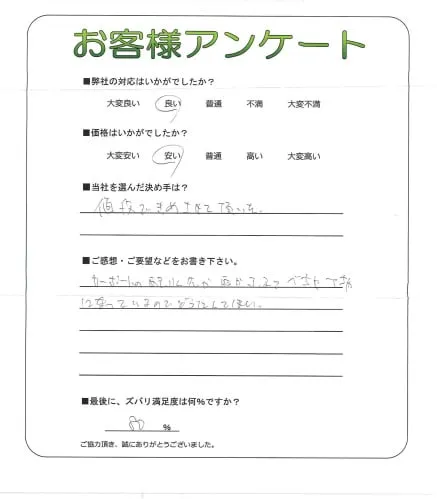 お客様アンケート
■弊社の対応はいかがでしたか？
大変良い 良い 普通 不満 大変不満
■価格はいかがでしたか？
大変安い 安い 普通 高い 大変高い
■当社を選んだ決め手は？
値段できめさせて頂いた。
■ご感想・ご要望などをお書き下さい。
カーポートの
になっているのでどうにかしてほしい。
■最後に、ズバリ満足度は何％ですか？
80 ％
ご協力頂き、誠にありがとうございました。